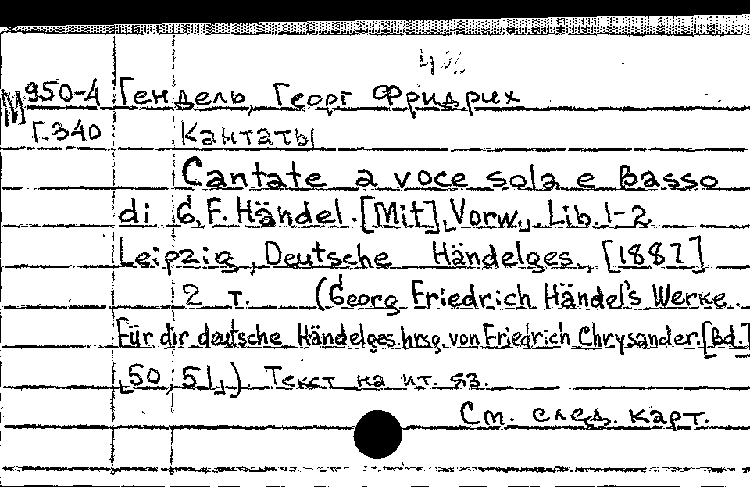 М 950-4 Гендель, Георг Фридрих
Г.340 Кантаты
Cantate a voce sola e Basso
di G.F. Händel. [Mit] Vorw. Lib. 1-2.
Leipzig, Deutsche Händelges., [1887]
2 т. (Georg Friedrich Händel's Werke.
Für dir deutsche Händelges. hrsg. von Friedrich Chrysander. [Bd.]
50, 51). Текст на ит. яз.
См. след. карт.